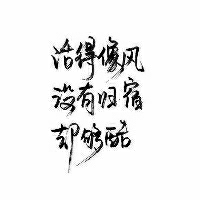 活得像风
没有归宿
却够酷